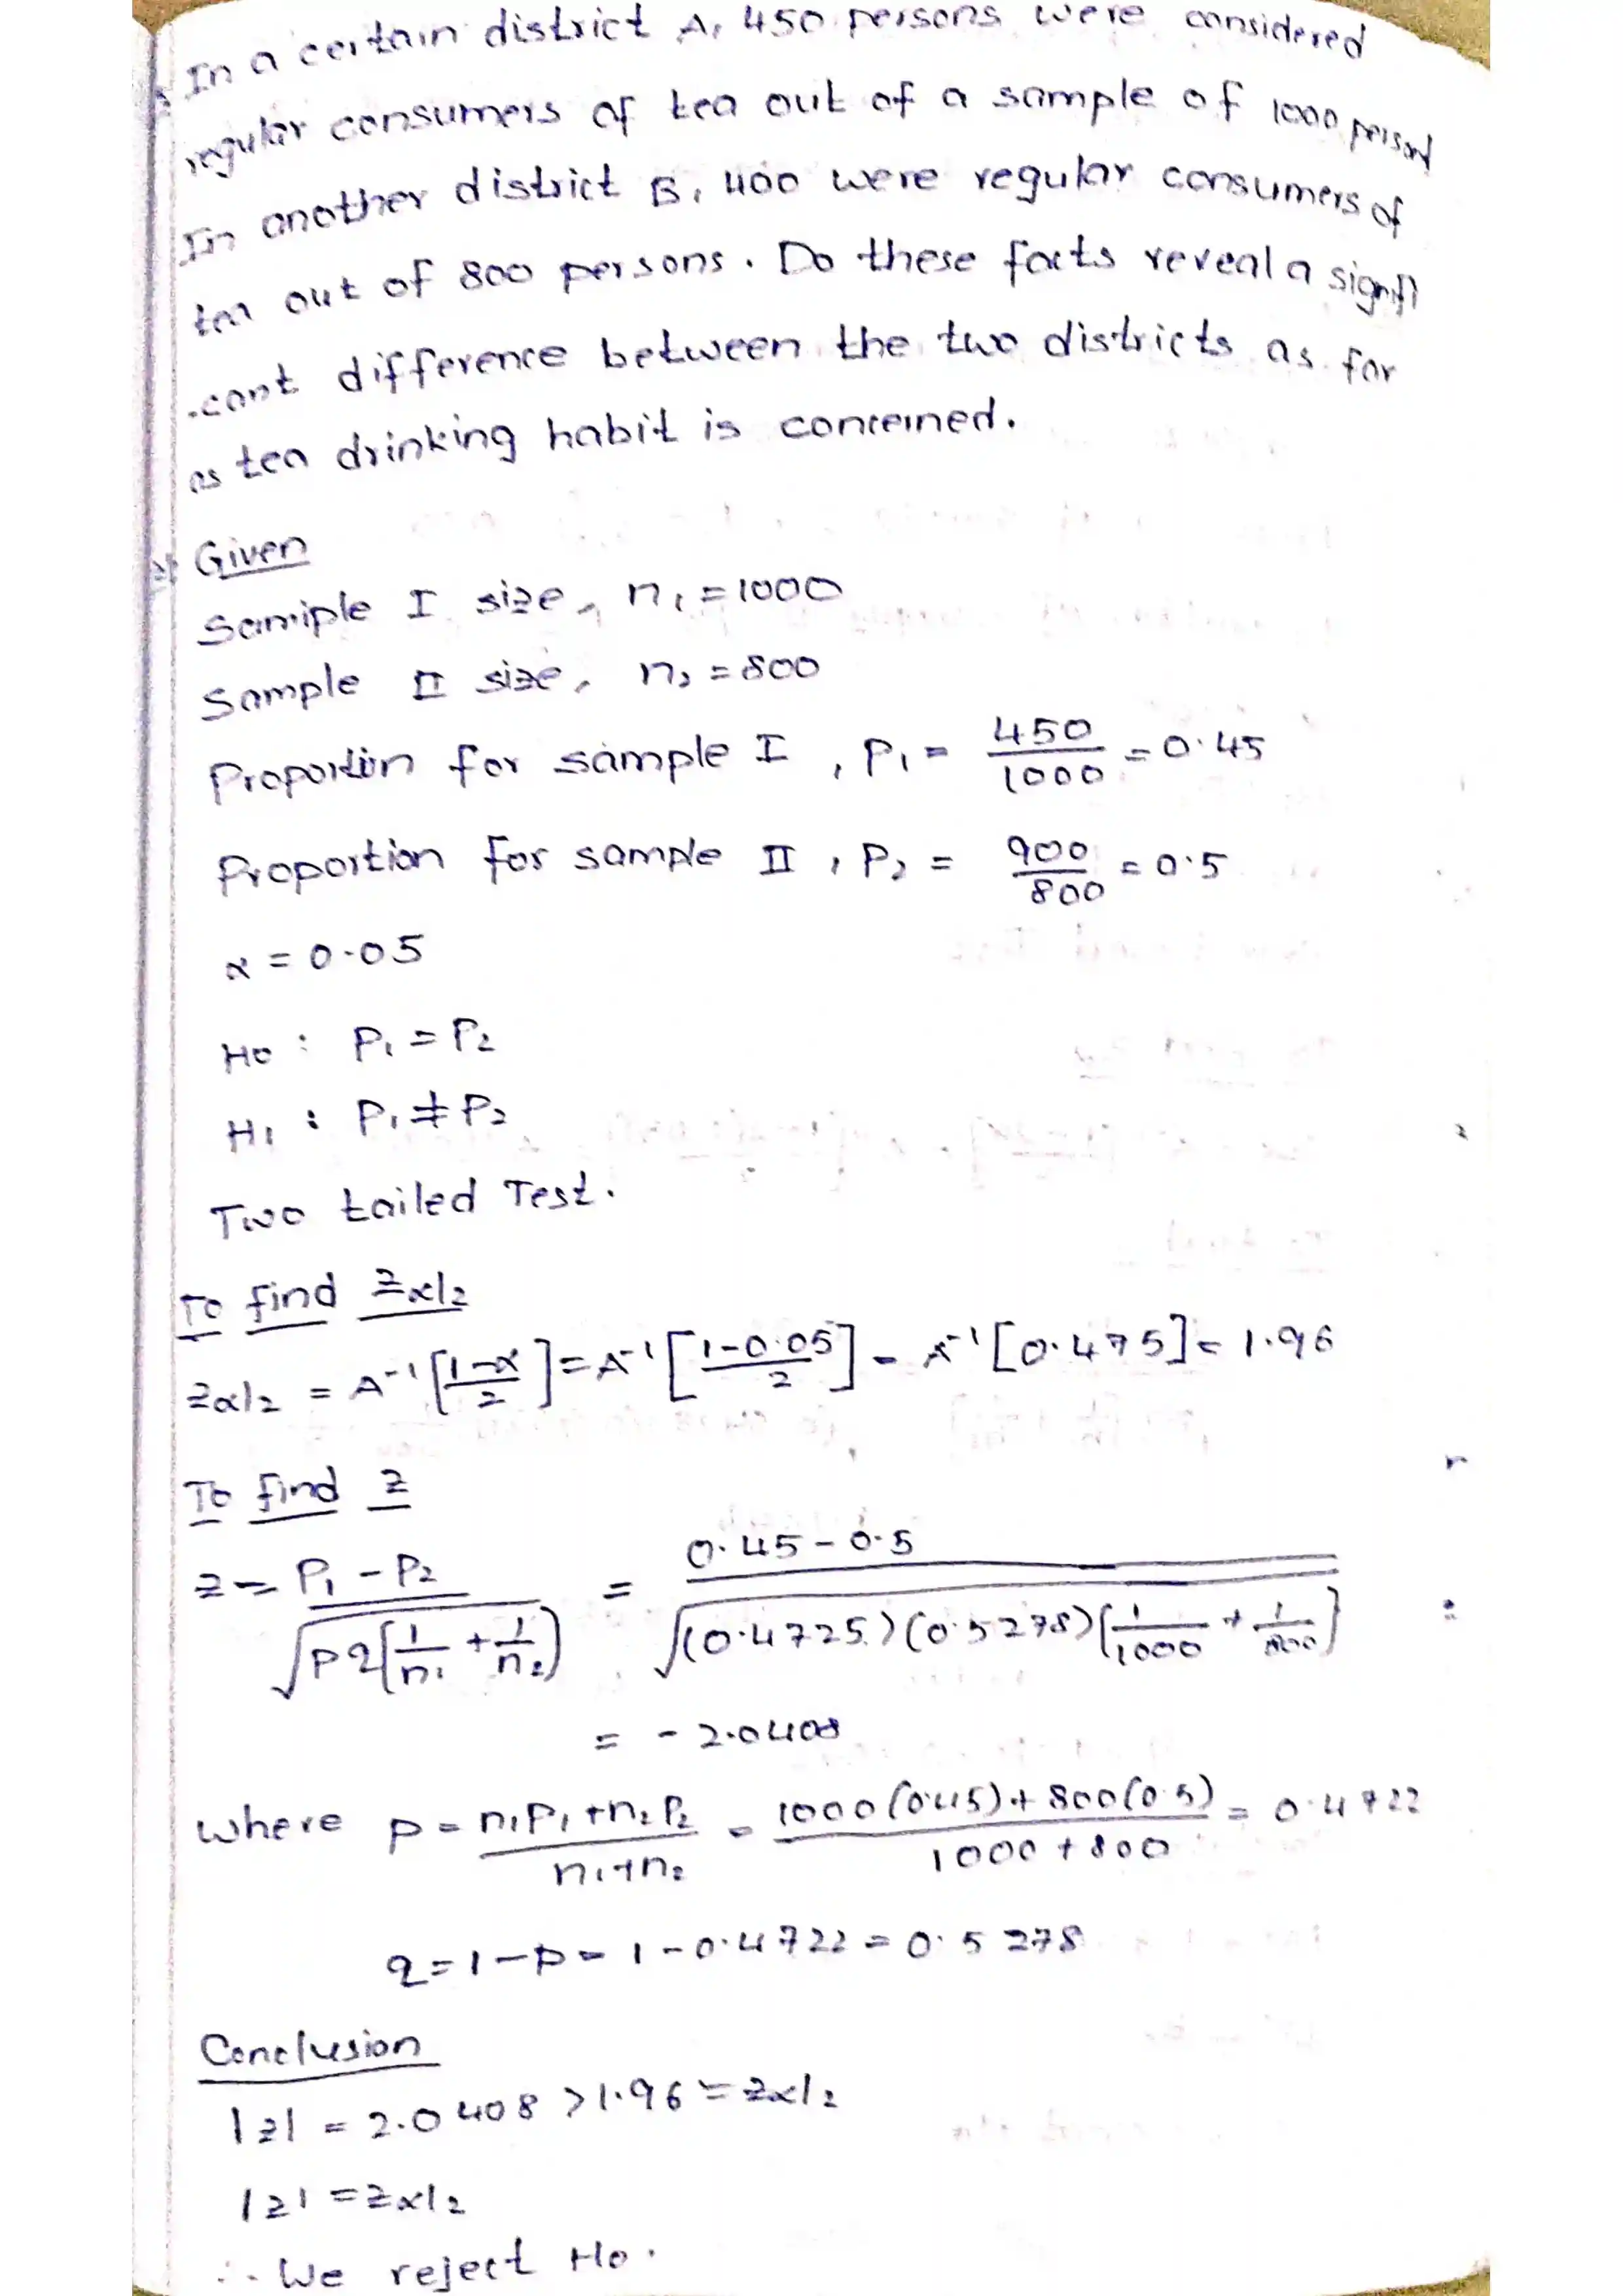 In a certain district A, 450 persons were considered
regular consumers of tea out of a sample of 1000 persons
In another district B, 400 were regular consumers of
tea out of 800 persons. Do these facts reveal a signifi
-cant difference between the two districts as far
as tea drinking habit is concerned.
Given
Sample I size, n₁ = 1000
Sample II size, n₂ = 800
Proportion for sample I, P₁ = 450/1000 = 0.45
Proportion for sample II, P₂ = 900/800 = 0.5
α = 0.05
H0 : P₁ = P₂
H1 : P₁ ≠ P₂
Two tailed Test.
To find Zα/2
Zα/2 = A⁻¹[1-α/2] = A⁻¹[1-0.05/2] = A⁻¹[0.475] = 1.96
To find Z
Z = P₁ - P₂/√pq(1/n₁ + 1/n₂) = 0.45 - 0.5/√(0.4725)(0.5278)(1/1000 + 1/800)
= -2.0408
where p = n₁P₁ + n₂P₂/n₁+n₂ = 1000(0.45) + 800(0.5)/1000 + 800 = 0.4722
q = 1 - p = 1 - 0.4722 = 0.5278
Conclusion
|z| = 2.0408 > 1.96 = Zα/2
|z| = Zα/2
∴ We reject H0.